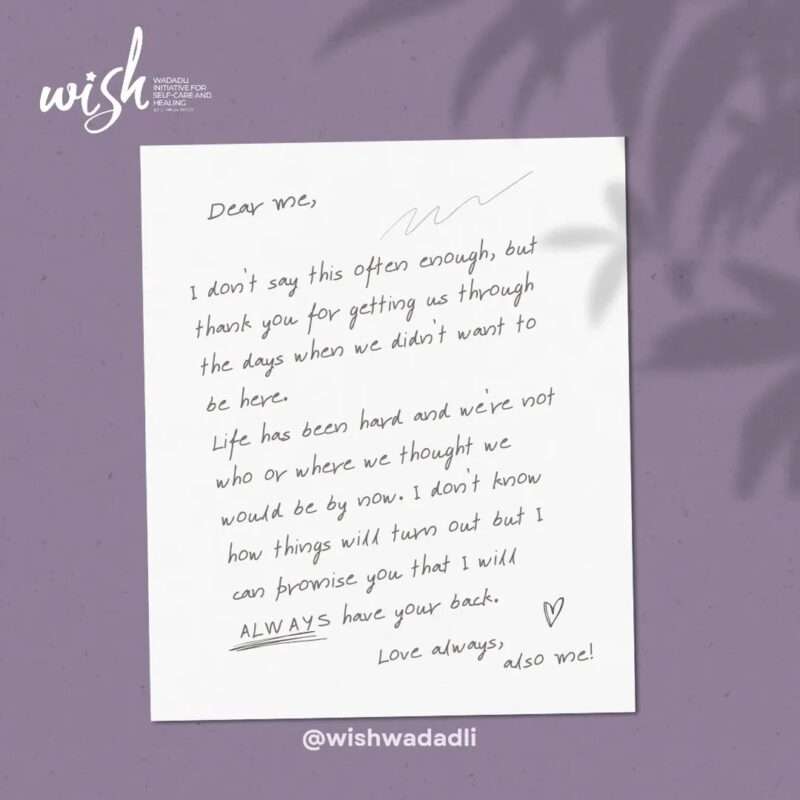 wish
WADADLI
INITIATIVE FOR
SELF-CARE AND
HEALING
Dear me,
I don't say this often enough, but
thank you for getting us through
the days when we didn't want to
be here.
Life has been hard and we're not
who or where we thought we
would be by now. I don't know
how things will turn out but I
can promise you that I will
ALWAYS have your back.
Love always,
also me!
@wishwadadli